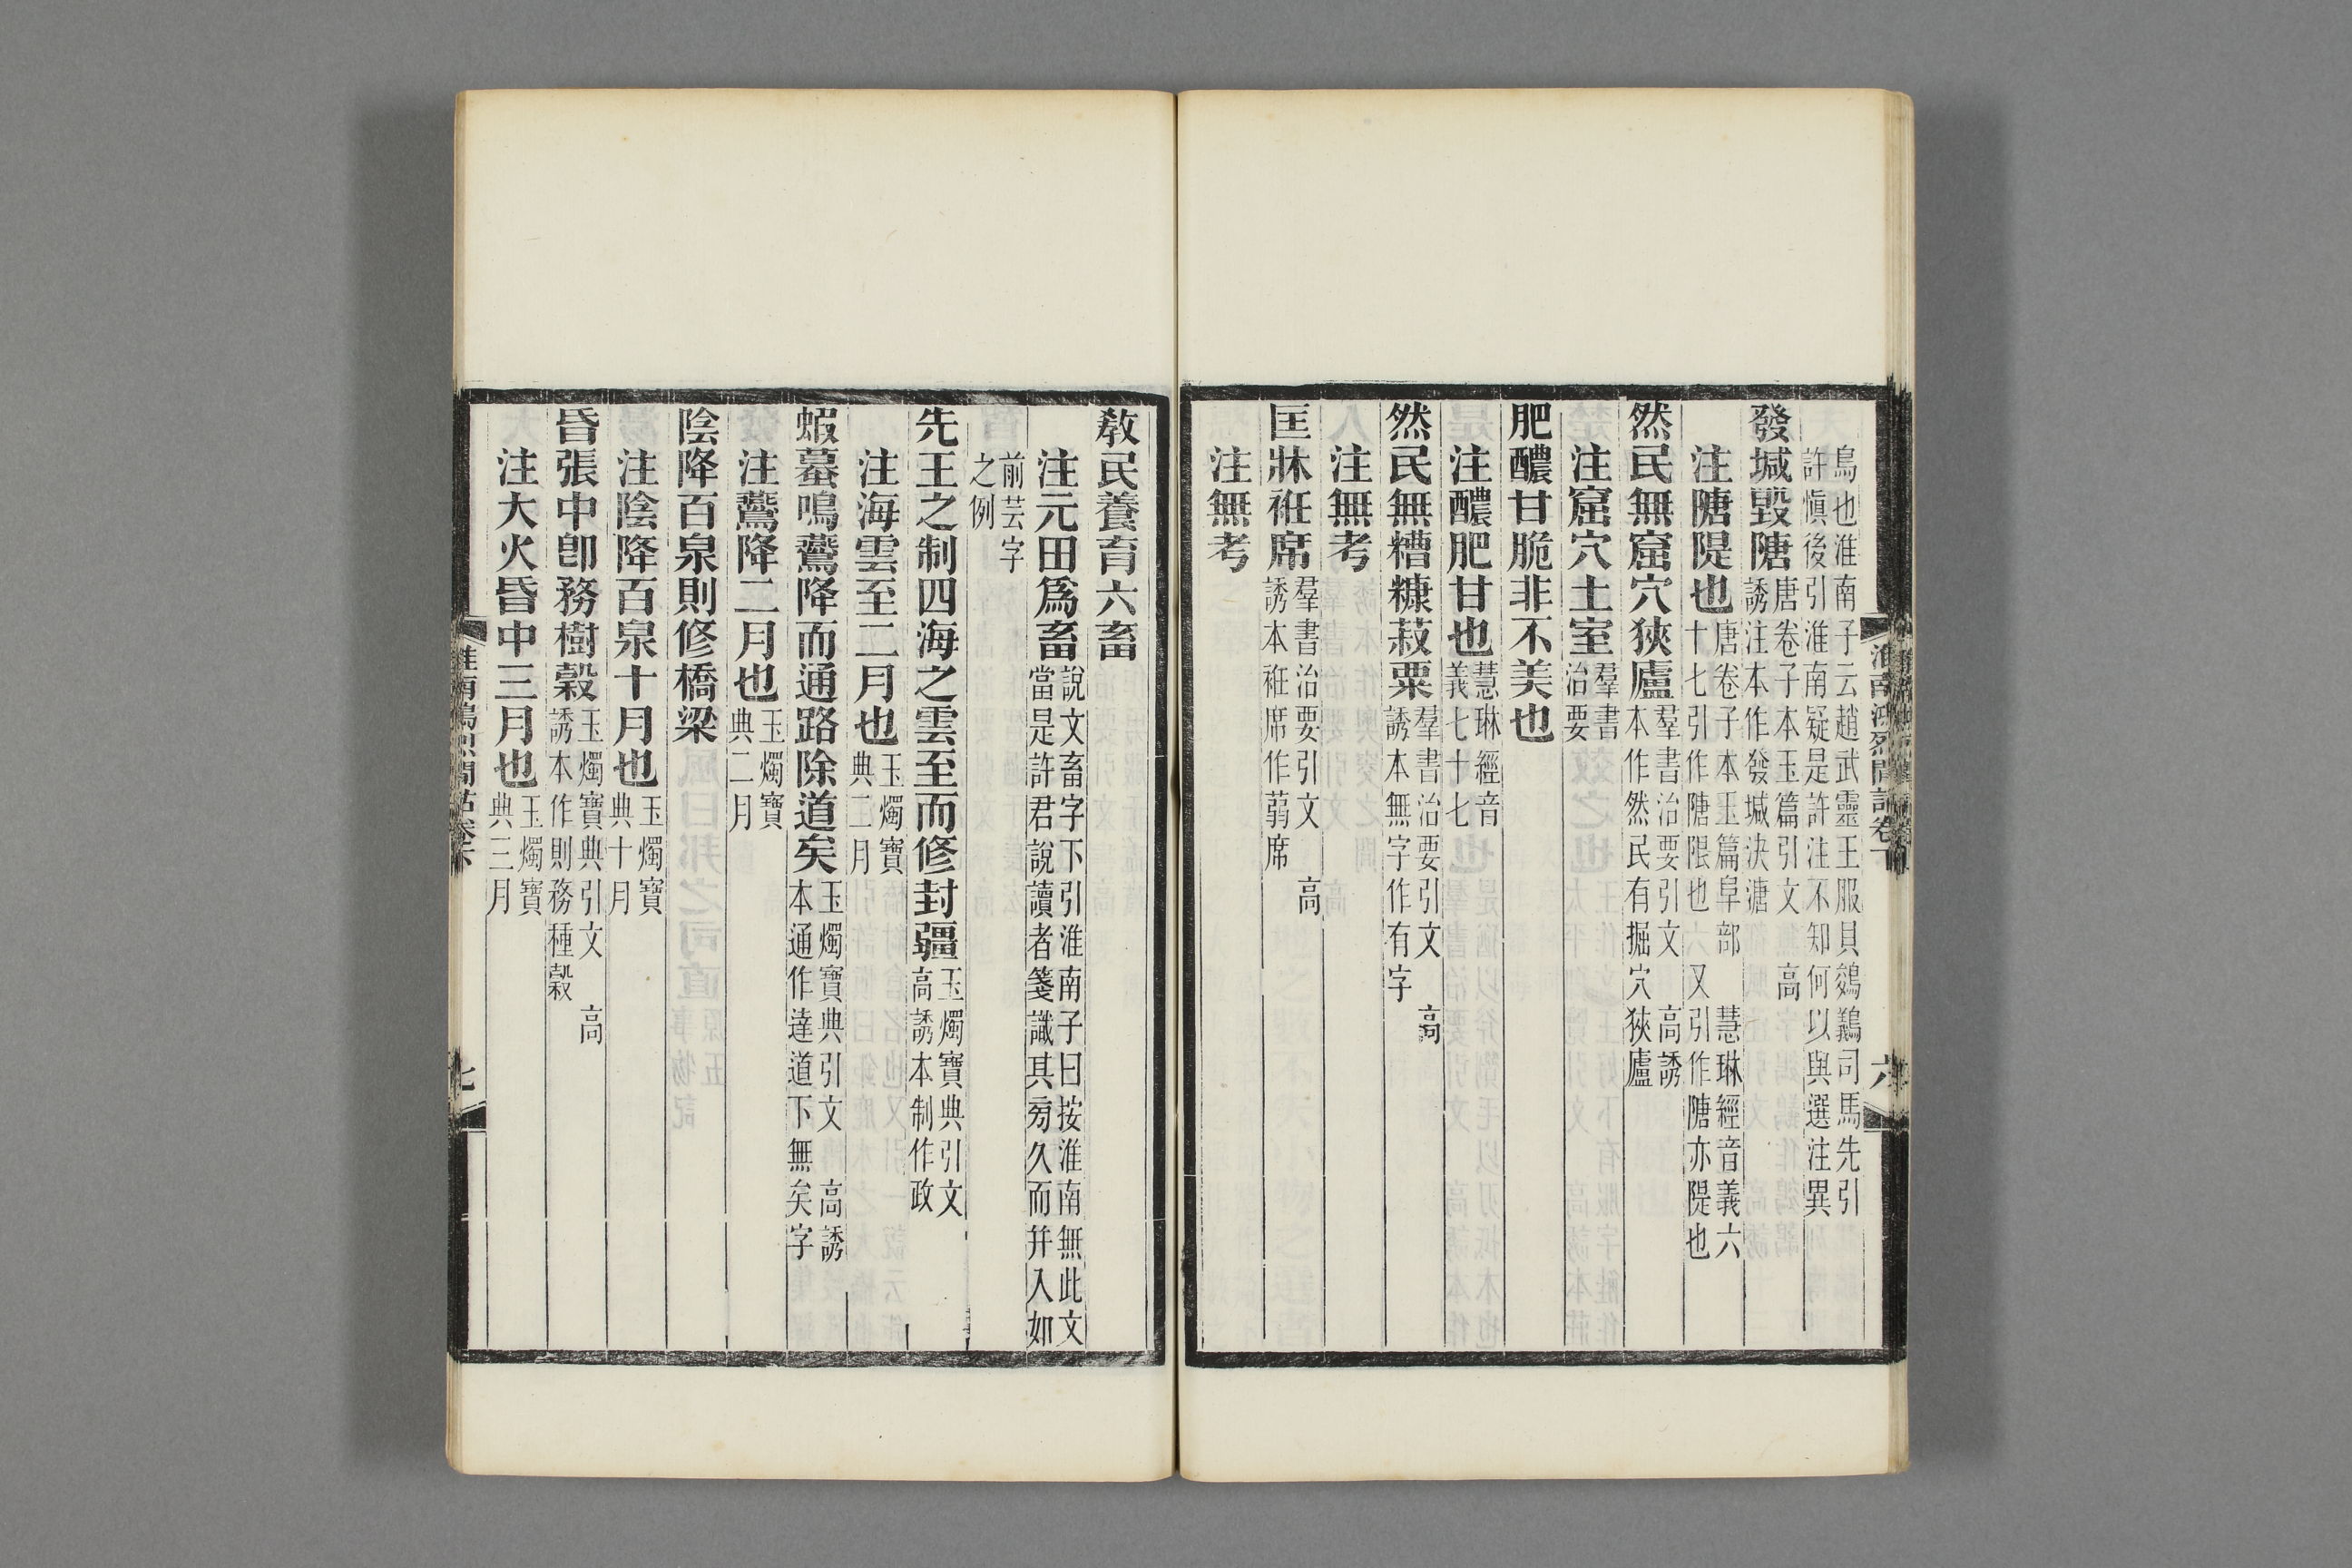 鳥也淮南子云趙武靈王服貝鵕鸃司馬先引
許愼後引淮南疑是許注不知何以與選注異
發堿毀隓唐卷子本玉篇引文　高
誘注本作發堿決溏
注隓隄也唐卷子本玉篇阜部　慧琳經音義六
十七引作隓限也　又引作隓亦隄也
然民無窟穴狹廬羣書治要引文　高誘
本作然民有掘穴狹廬
注窟穴土室羣書
治要
肥醲甘脆非不美也
注醲肥甘也慧琳經音
義七十七
然民無糟糠菽粟羣書治要引文　高
誘本無字作有字
注無考
匡牀袵席羣書治要引文　高
誘本袵席作蒻席
注無考
淮南鴻烈閒詁卷下
六
敎民養育六畜
注元田爲畜說文畜字下引淮南子曰按淮南無此文
當是許君說讀者箋識其旁久而幷入如
前芸字
之例
先王之制四海之雲至而修封疆玉燭寶典引文
高誘本制作政
注海雲至二月也玉燭寶
典二月
蝦蟇鳴鷰降而通路除道矣玉燭寶典引文　高誘
本通作達道下無矣字
注鷰降二月也玉燭寶
典二月
陰降百泉則修橋梁
注陰降百泉十月也玉燭寶
典十月
昏張中卽務樹穀玉燭寶典引文　高
誘本作則務種穀
注大火昏中三月也玉燭寶
典三月
淮南鴻烈閒詁卷下
七